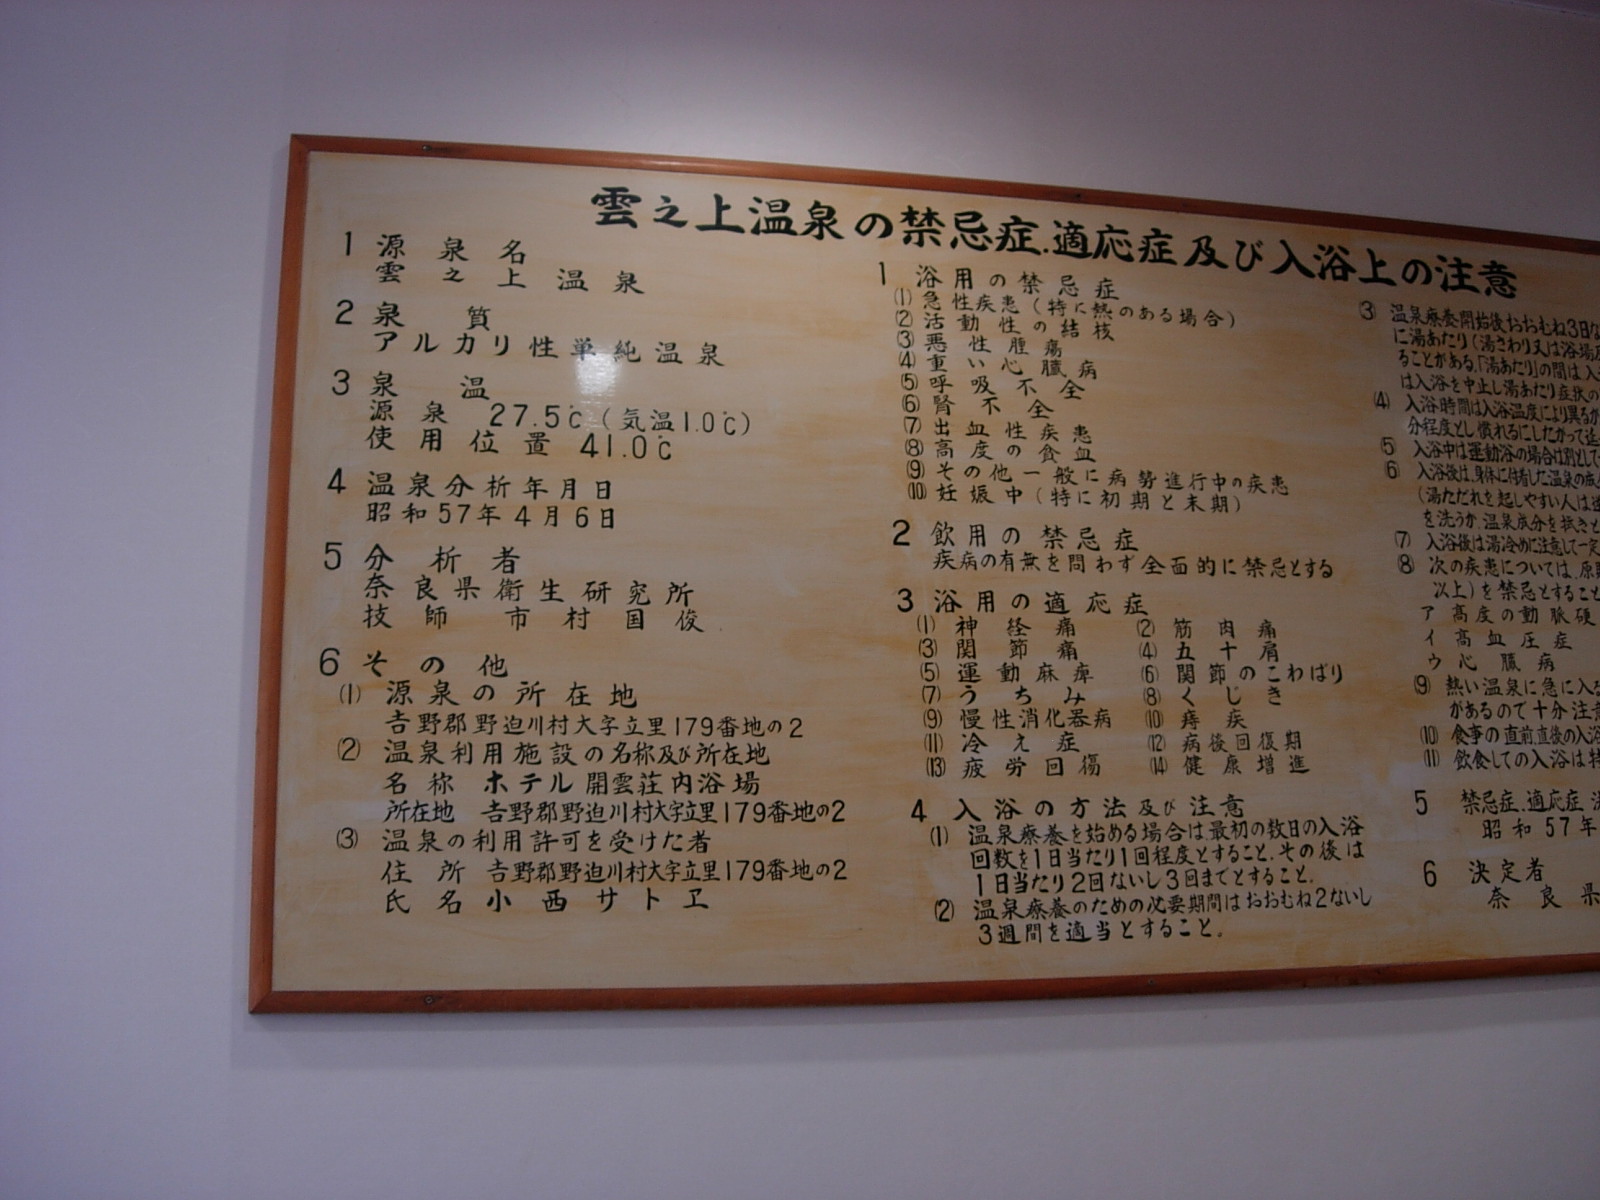 雲之上温泉の禁忌症.適応症及び入浴上の注意
1 源泉名
雲之上温泉
2 泉質
アルカリ性単純温泉
3 泉温
源泉 27.5℃(気温1.0℃)
使用位置 41.0℃
4 温泉分析年月日
昭和57年4月6日
5 分析者
奈良県衛生研究所
技師 市村国俊
6 その他
(1) 源泉の所在地
吉野郡野迫川村大字立里179番地の2
(2) 温泉利用施設の名称及び所在地
名称 ホテル開雲荘内浴場
所在地 吉野郡野迫川村大字立里179番地の2
(3) 温泉の利用許可を受けた者
住所 吉野郡野迫川村大字立里179番地の2
氏名 小西サトヱ
1 浴用の禁忌症
(1) 急性疾患(特に熱のある場合)
(2) 活動性の結核
(3) 悪性腫瘍
(4) 重い心臓病
(5) 呼吸不全
(6) 腎不全
(7) 出血性疾患
(8) 高度の貧血
(9) その他一般に病勢進行中の疾患
(10) 妊娠中(特に初期と末期)
2 飲用の禁忌症
疾病の有無を問わず全面的に禁忌とする
3 浴用の適応症
(1) 神経痛 (2) 筋肉痛
(3) 関節痛 (4) 五十肩
(5) 運動麻痺 (6) 関節のこわばり
(7) うちみ (8) くじき
(9) 慢性消化器病 (10) 痔疾
(11) 冷え症 (12) 病後回復期
(13) 疲労回復 (14) 健康増進
4 入浴の方法及び注意
(1) 温泉療養を始める場合は.最初の数日の入浴
回数を1日当たり1回程度とすること.その後は
1日当たり2回ないし3回までとすること.
(2) 温泉療養のための必要期間はおおむね2ないし
3週間を適当とすること.
(3) 温泉療養開始後おおむね3日
に湯あたり(湯さわり又は浴場
ることがある.「湯あたり」の間は入
は入浴を中止し湯あたり症状の
(4) 入浴時間は入浴温度により異るが
分程度とし慣れるにしたがって
(5) 入浴中は運動浴の場合は別として
(6) 入浴後は.身体に付着した温泉の成
(湯ただれを起しやすい人は
を洗うか.温泉成分を拭き
(7) 入浴後は湯冷めに注意して一定
(8) 次の疾患については.原
以上)を禁忌とすること
ア 高度の動脈硬
イ 高血圧症
ウ 心臓病
(9) 熱い温泉に急に入る
があるので十分注意
(10) 食事の直前.直後の入浴
(11) 飲食しての入浴は特
5 禁忌症.適応症
昭和57年
6 決定者
奈良県